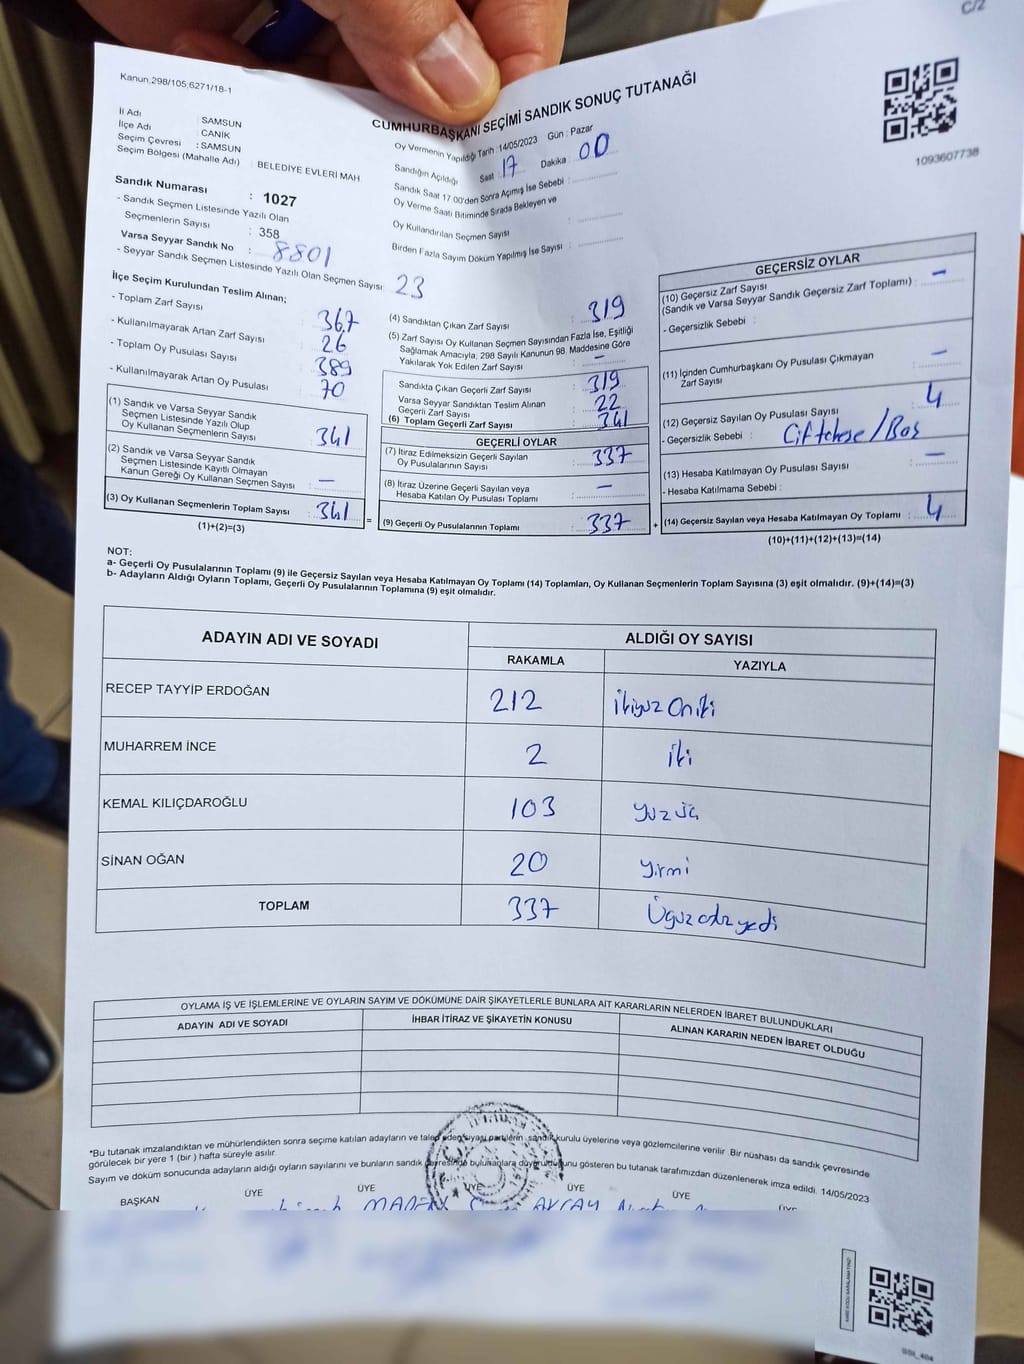 C/2
Kanun.298/105,6271/18-1
CUMHURBAŞKANI SEÇİMİ SANDIK SONUÇ TUTANAĞI
1093607738
İl Adı : SAMSUN
İlçe Adı : CANİK
Seçim Çevresi : SAMSUN
Seçim Bölgesi (Mahalle Adı) : BELEDİYE EVLERİ MAH.
Sandık Numarası : 1027
- Sandık Seçmen Listesinde Yazılı Olan
Seçmenlerin Sayısı : 358
Varsa Seyyar Sandık No : 8801
- Seyyar Sandık Seçmen Listesinde Yazılı Olan Seçmen Sayısı : 23
Oy Vermenin Yapıldığı Tarih : 14/05/2023 Gün : Pazar
Sandığın Açıldığı Saat : 17 Dakika : 00
Sandık Saat 17:00'den Sonra Açılmış İse Sebebi :
Oy Verme Saati Bitiminde Sırada Bekleyen ve
Oy Kullandırılan Seçmen Sayısı :
Birden Fazla Sayım Döküm Yapılmış İse Sayısı :
İlçe Seçim Kurulundan Teslim Alınan;
- Toplam Zarf Sayısı : 367
- Kullanılmayarak Artan Zarf Sayısı : 26
- Toplam Oy Pusulası Sayısı : 389
- Kullanılmayarak Artan Oy Pusulası : 70
(1) Sandık ve Varsa Seyyar Sandık
Seçmen Listesinde Yazılı Olup
Oy Kullanan Seçmenlerin Sayısı : 341
(2) Sandık ve Varsa Seyyar Sandık
Seçmen Listesinde Kayıtlı Olmayan
Kanun Gereği Oy Kullanan Seçmen Sayısı : —
(3) Oy Kullanan Seçmenlerin Toplam Sayısı : 341
(1)+(2)=(3)
=
(4) Sandıktan Çıkan Zarf Sayısı : 319
(5) Zarf Sayısı Oy Kullanan Seçmen Sayısından Fazla İse, Eşitliği
Sağlamak Amacıyla, 298 Sayılı Kanunun 98. Maddesine Göre
Yakılarak Yok Edilen Zarf Sayısı : —
Sandıkta Çıkan Geçerli Zarf Sayısı : 319
Varsa Seyyar Sandıktan Teslim Alınan
Geçerli Zarf Sayısı : 22
(6) Toplam Geçerli Zarf Sayısı : 341
GEÇERLİ OYLAR
(7) İtiraz Edilmeksizin Geçerli Sayılan
Oy Pusulalarının Sayısı : 337
(8) İtiraz Üzerine Geçerli Sayılan veya
Hesaba Katılan Oy Pusulası Toplamı : —
(9) Geçerli Oy Pusulalarının Toplamı : 337
+
GEÇERSİZ OYLAR
(10) Geçersiz Zarf Sayısı
(Sandık ve Varsa Seyyar Sandık Geçersiz Zarf Toplamı) : —
- Geçersizlik Sebebi :
(11) İçinden Cumhurbaşkanı Oy Pusulası Çıkmayan
Zarf Sayısı : —
(12) Geçersiz Sayılan Oy Pusulası Sayısı : 4
- Geçersizlik Sebebi : Çift kaşe/Boş
(13) Hesaba Katılmayan Oy Pusulası Sayısı : —
- Hesaba Katılmama Sebebi :
(14) Geçersiz Sayılan veya Hesaba Katılmayan Oy Toplamı : 4
(10)+(11)+(12)+(13)=(14)
NOT:
a- Geçerli Oy Pusulalarının Toplamı (9) ile Geçersiz Sayılan veya Hesaba Katılmayan Oy Toplamı (14) Toplamları, Oy Kullanan Seçmenlerin Toplam Sayısına (3) eşit olmalıdır. (9)+(14)=(3)
b- Adayların Aldığı Oyların Toplamı, Geçerli Oy Pusulalarının Toplamına (9) eşit olmalıdır.
ADAYIN ADI VE SOYADI ALDIĞI OY SAYISI
RAKAMLA YAZIYLA
RECEP TAYYİP ERDOĞAN 212 ikiyüz Oniki
MUHARREM İNCE 2 iki
KEMAL KILIÇDAROĞLU 103 yüz üç
SİNAN OĞAN 20 yirmi
TOPLAM 337 Üçyüz otuz yedi
OYLAMA İŞ VE İŞLEMLERİNE VE OYLARIN SAYIM VE DÖKÜMÜNE DAİR ŞİKAYETLERLE BUNLARA AİT KARARLARIN NELERDEN İBARET BULUNDUKLARI
ADAYIN ADI VE SOYADI İHBAR İTİRAZ VE ŞİKAYETİN KONUSU ALINAN KARARIN NEDEN İBARET OLDUĞU
*Bu tutanak imzalandıktan ve mühürlendikten sonra seçime katılan adayların ve talep eden siyasi partilerin sandık kurulu üyelerine veya gözlemcilerine verilir. Bir nüshası da sandık çevresinde
görülecek bir yere 1 (bir) hafta süreyle asılır.
Sayım ve döküm sonucunda adayların aldığı oyların sayılarını ve bunların sandık çevresinde bulunanlara duyurulduğunu gösteren bu tutanak tarafımızdan düzenlenerek imza edildi. 14/05/2023
BAŞKAN ÜYE ÜYE ÜYE ÜYE ÜYE